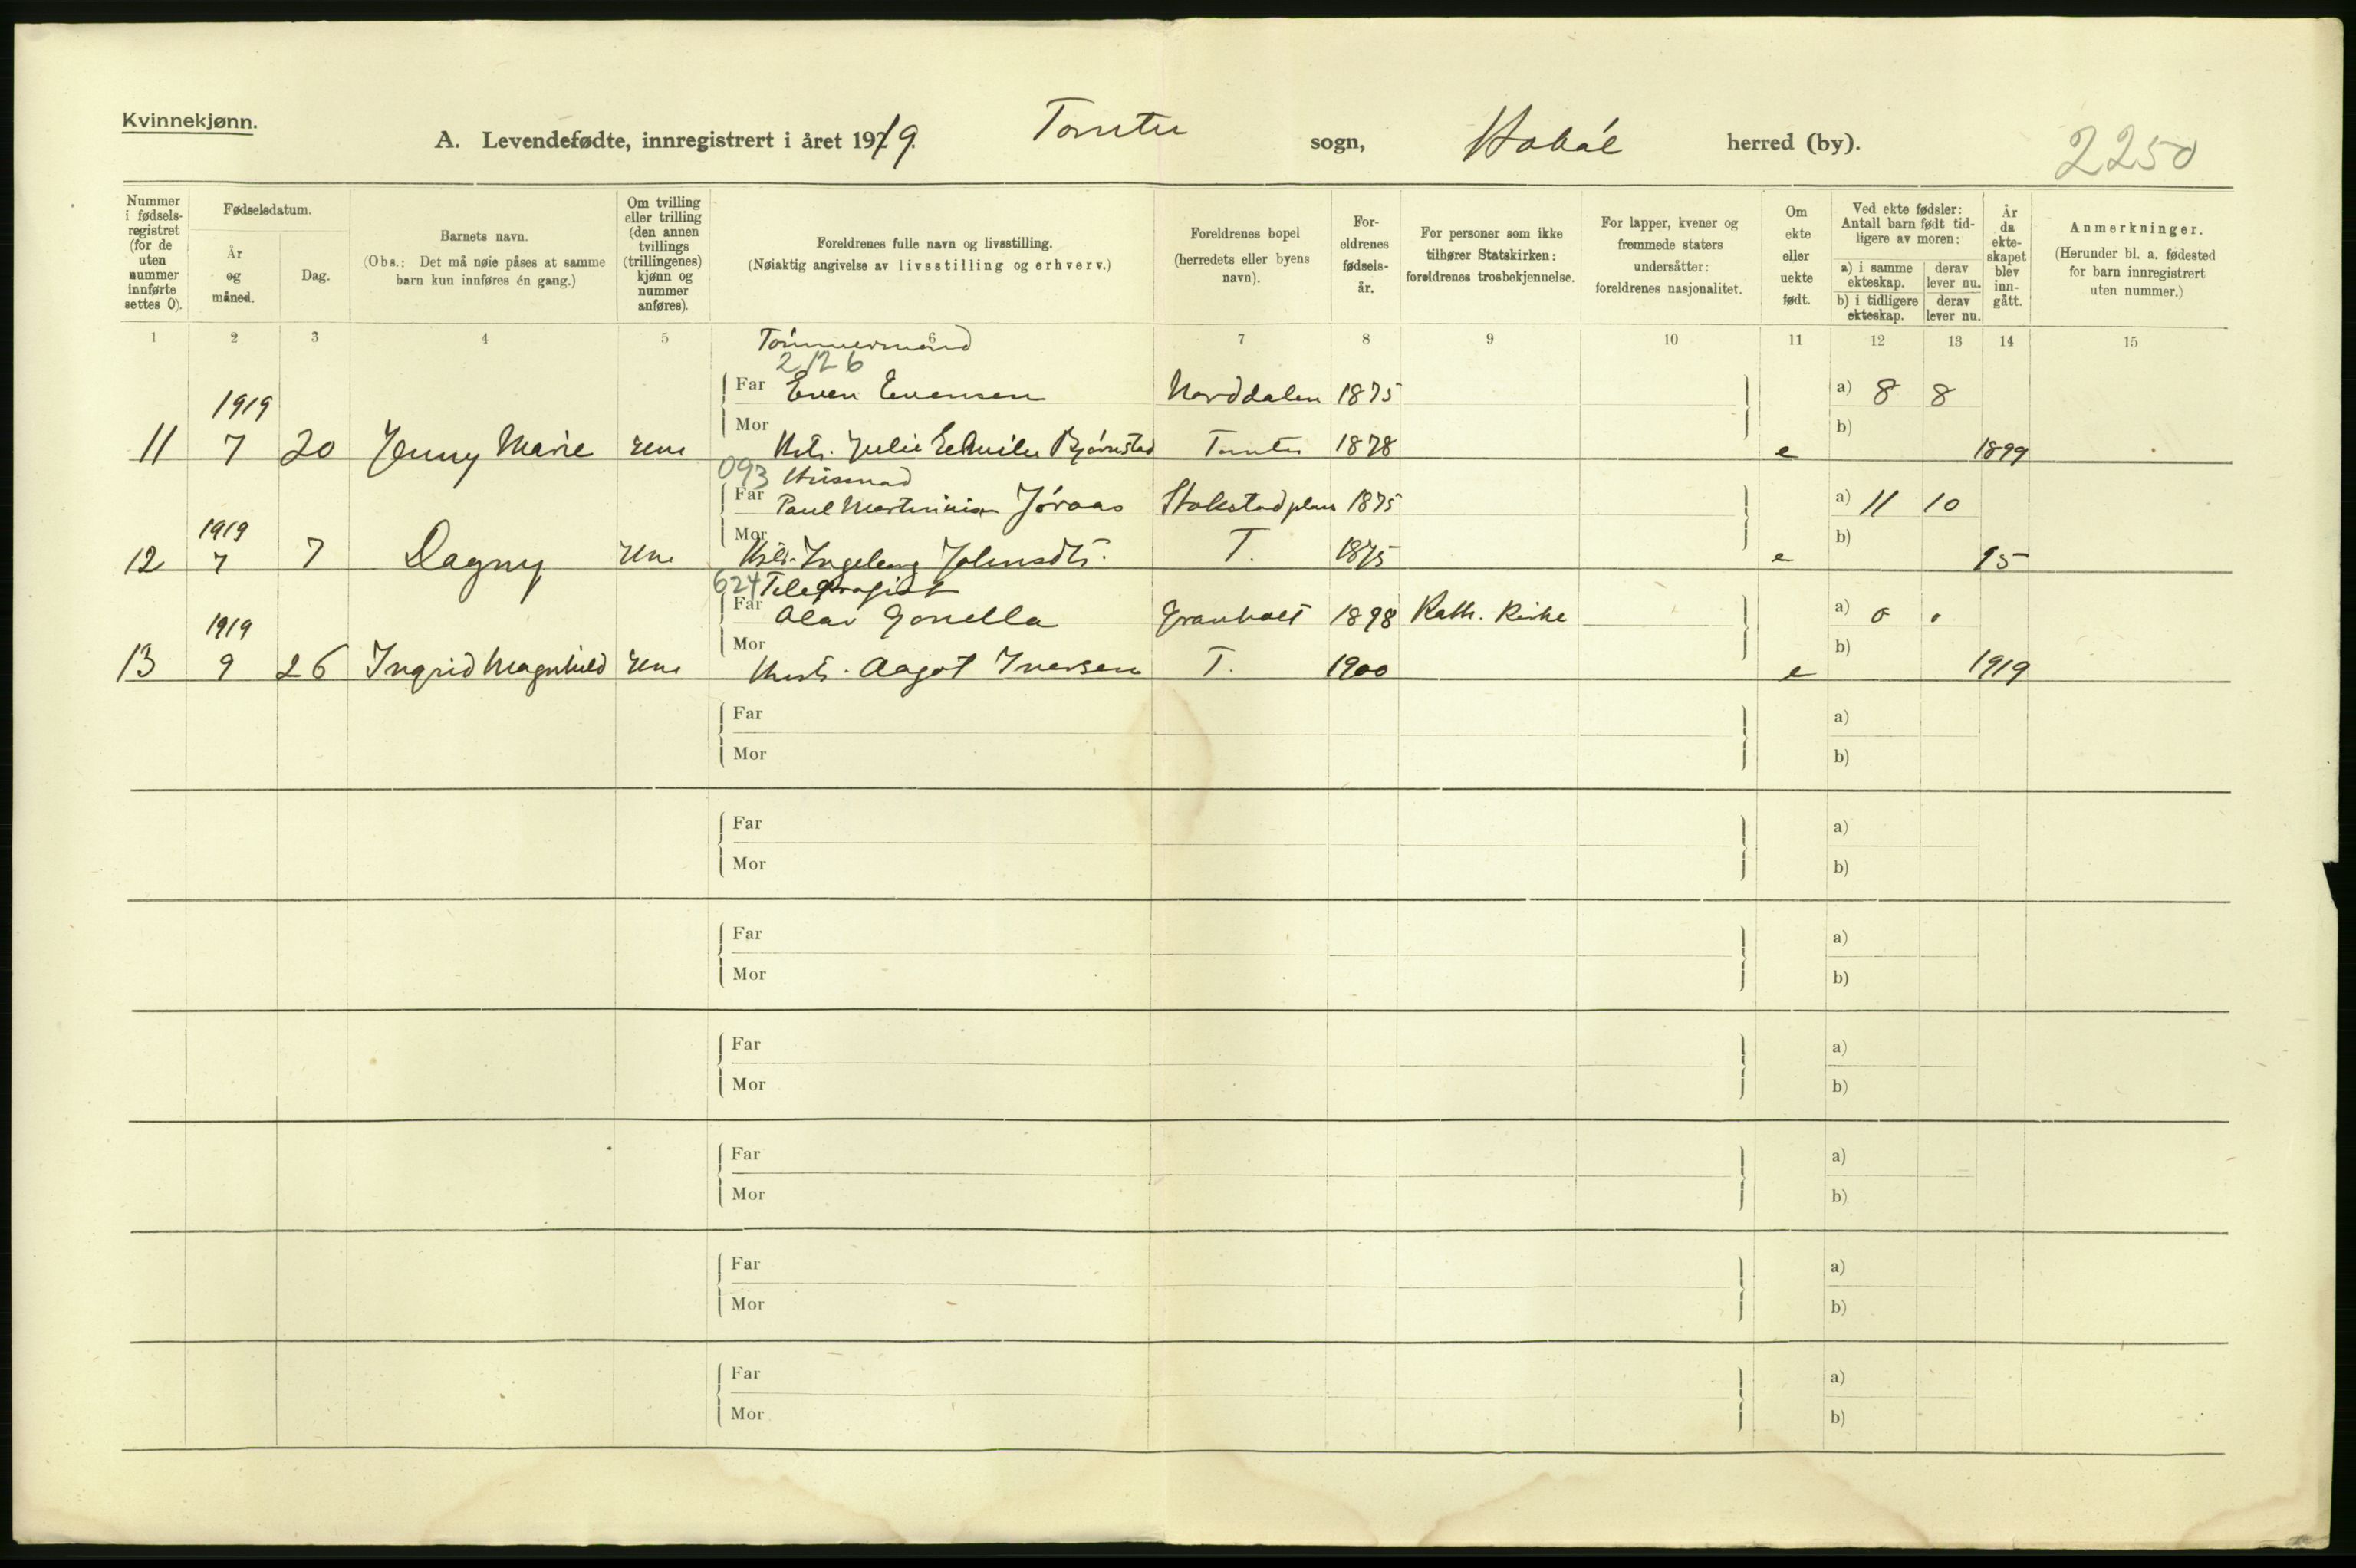 Kvinnekjønn.
A. Levendefødte, innregistrert i året 1919. Tomter sogn, Hobøl herred (by). 2250
Nummer i fødsels-registret (for de uten nummer innførte settes 0).
Fødselsdatum.
År og måned.
Dag.
Barnets navn.
(Obs.: Det må nøie påses at samme barn kun innføres én gang.)
Om tvilling eller trilling (den annen tvillings (trillingenes) kjønn og nummer anføres).
Foreldrenes fulle navn og livsstilling.
(Nøiaktig angivelse av livsstilling og erhverv.)
Foreldrenes bopel (herredets eller byens navn).
For-eldrenes fødsels-år.
For personer som ikke tilhører Statskirken: foreldrenes trosbekjennelse.
For lapper, kvener og fremmede staters undersåtter: foreldrenes nasjonalitet.
Om ekte eller uekte født.
Ved ekte fødsler: Antall barn født tid-ligere av moren:
a) i samme ekteskap. derav lever nu.
b) i tidligere ekteskap. derav lever nu.
År da ekte-skapet blev inn-gått.
Anmerkninger.
(Herunder bl. a. fødested for barn innregistrert uten nummer.)
1 2 3 4 5 6 7 8 9 10 11 12 13 14 15
Tømmermand
2126
1919 Far Even Evensen Norddalen 1875 a) 8 8
11 7 20 Jenny Marie Mor Julie Bjørnstad Tomter 1878 e b) 1899
093 Husmand
1919 Far Paul Jøraas 1875 a) 11 10
12 7 7 Dagny Mor Ingeborg T. 1875 e b) 95
624 Telegrafist
1919 Far Olav Gonella Granholt 1898 Kath. Kirke a) 0 0
13 9 26 Ingrid Magnhild Mor Aagot Iversen T. 1900 e b) 1919
Far a)
Mor b)
Far a)
Mor b)
Far a)
Mor b)
Far a)
Mor b)
Far a)
Mor b)
Far a)
Mor b)
Far a)
Mor b)